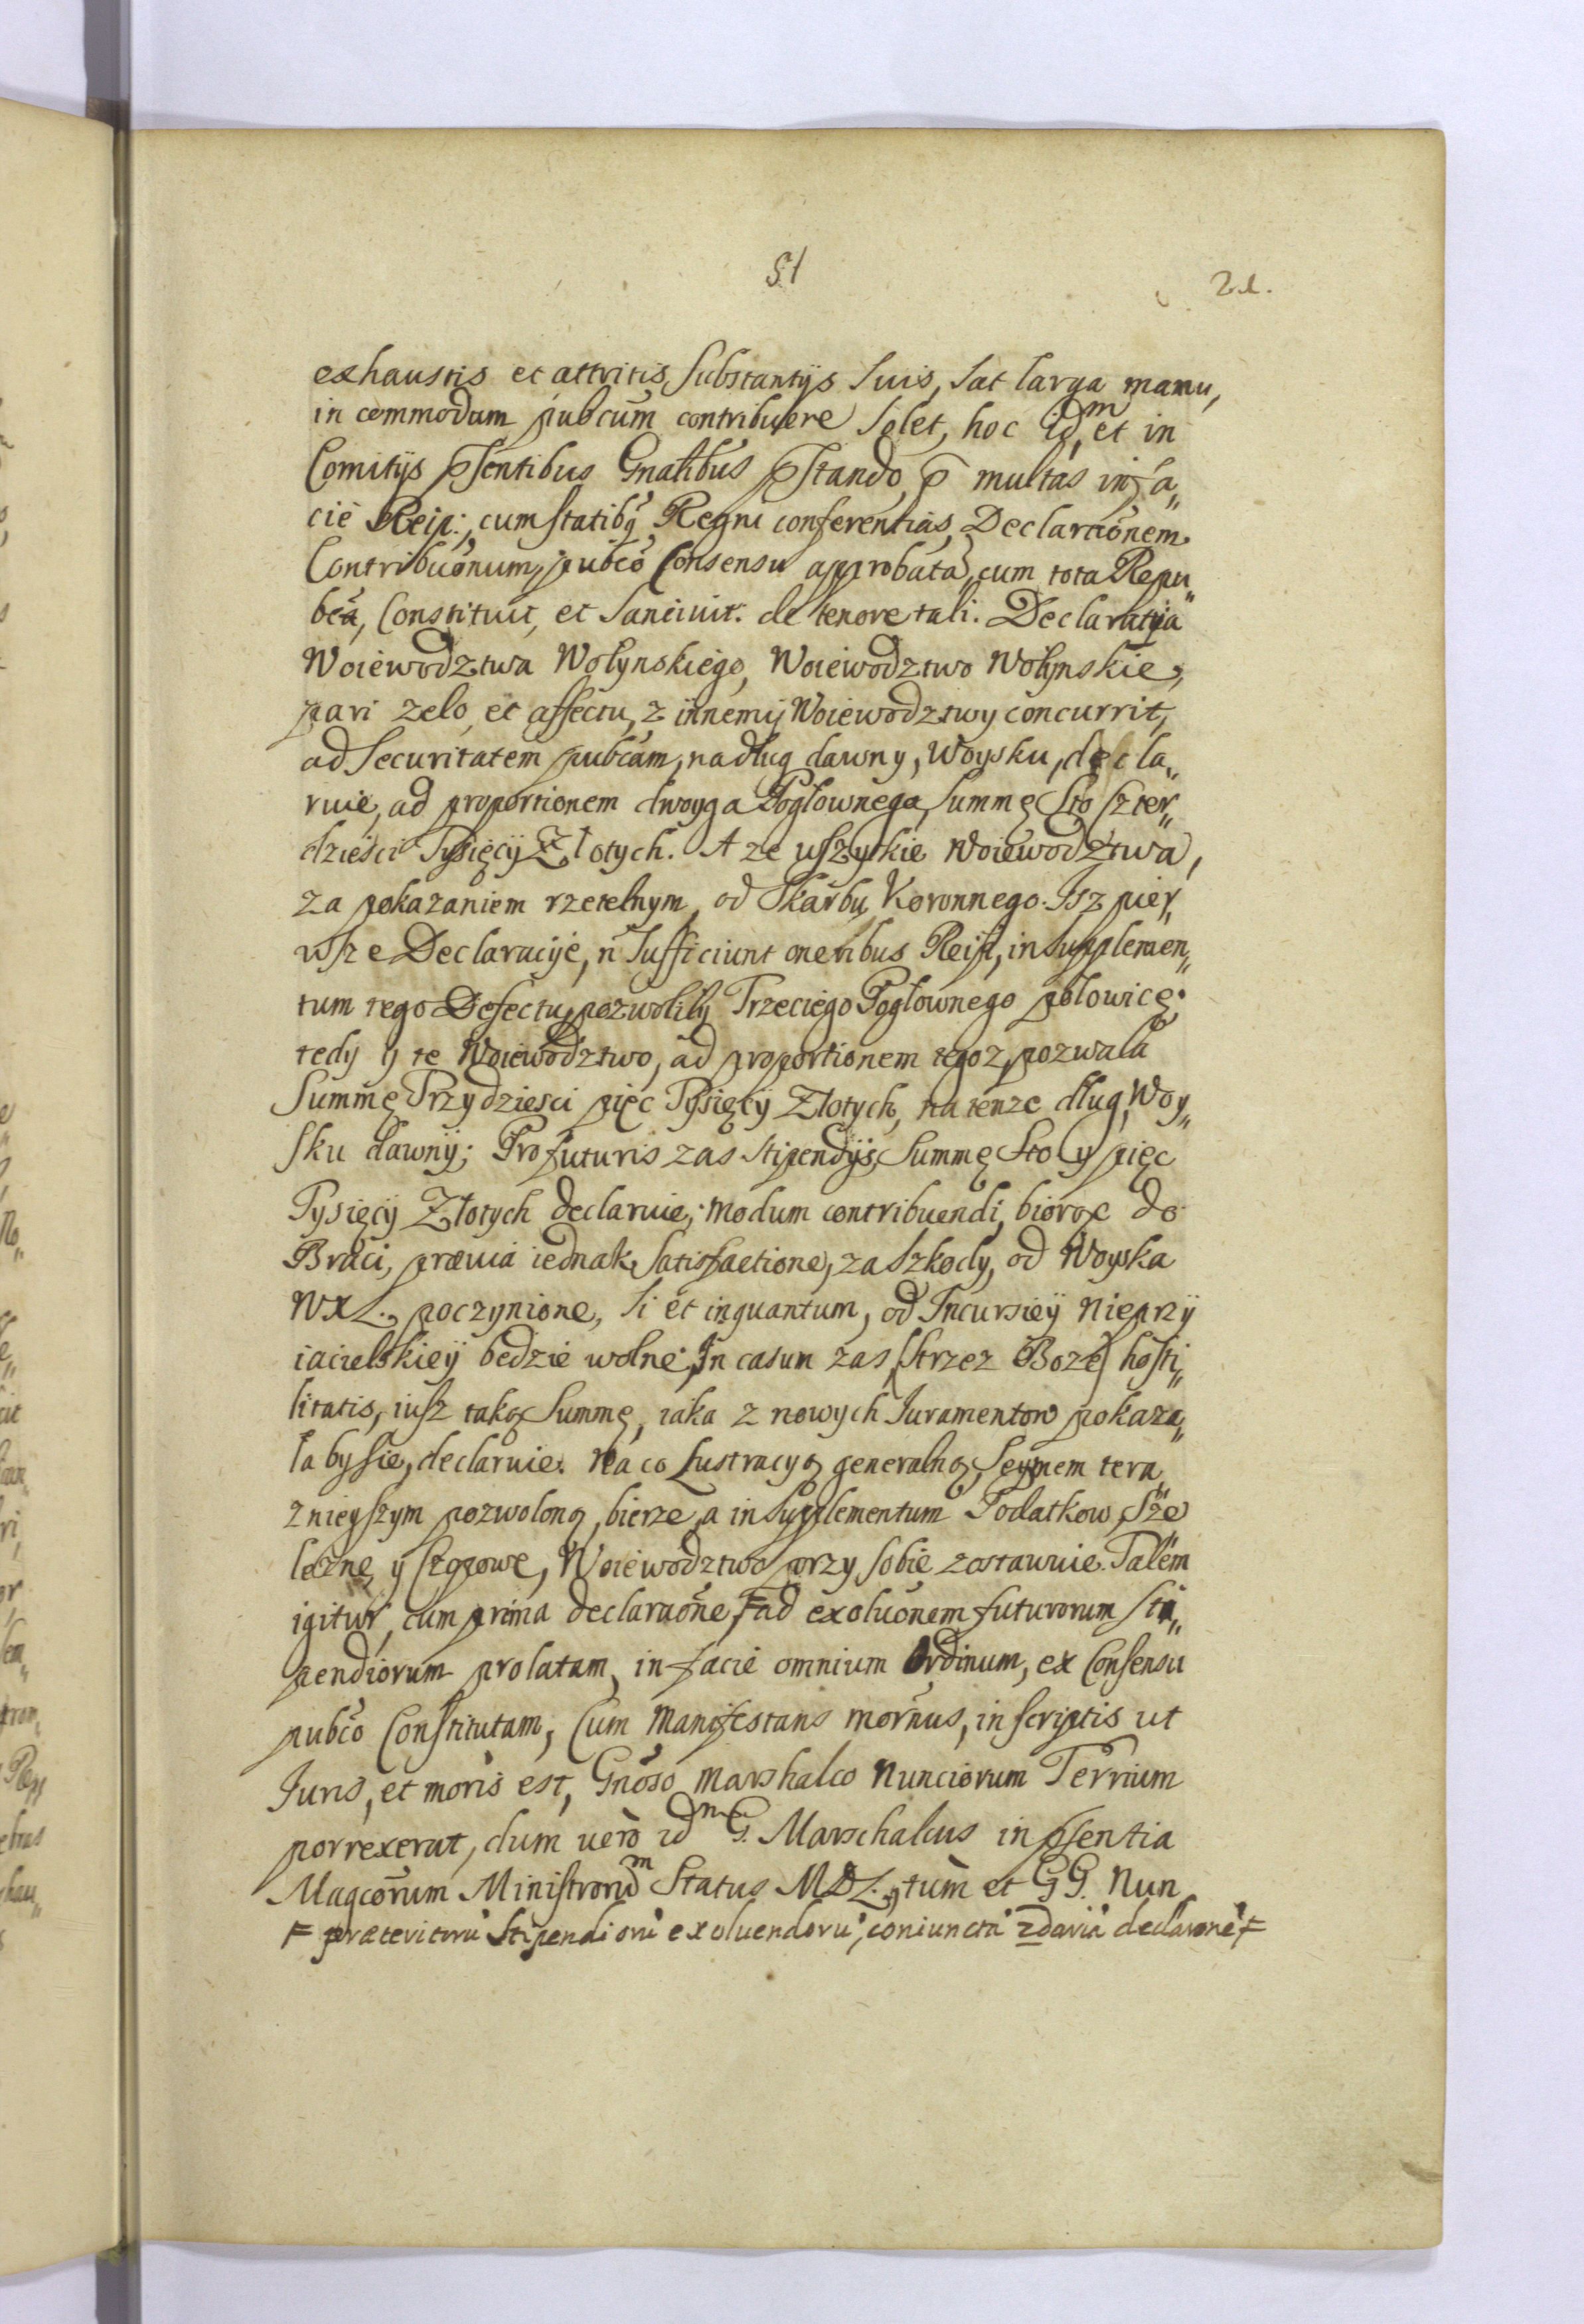 51
21.
exhaustis et attritis, Substantijs Suis, Sat larga manu,
in commodum pubcum contribuere Solet, hoc idm et in
Comitijs pSentibus Gnalibus pStando, p multas in fa„
cie Reip:, cum statibq Regni conferentias, Declarationem
Contribuonum, pubco Consensu approbata, cum tota Repu„
bca, Constituit, et Sancivit. de tenore tali. Declaratija
Woiewodztwa Wolynskiego, Woiewodztwo Wolynskie,
pari zelo et affectu, z innemij Woiewodztwy concurrit,
ad Securitatem pubcam, na dług dawny, Woysku, decla„
ruie, ad proportionem dwoyga Pogłownego Summę Sto szter„
dziesci Tysięcij Złotych. A ze wszytkie Woiewodztwa,
za pokazaniem rzetelnym, od Skarbu Koronnego. Isz pier„
wsze Declaracije, n Sufficiunt oneribus Reip, in Supplemen„
tum tego Defectu, pozwolilij Trzeciego Pogłownego połowicę;
tedy ij te Woiewodztwo, ad proportionem tegoz, pozwala
Summę Trzydziesci pięc Tysięcij Złotych, na tenze dług, Woy„
sku dawnij; Pro futuris zas stipendijs, Summę Sto y pięc
Tysięcij Złotych declaruie; modum contribuendi, biorąc do
Braci, prævia iednak Satisfactione, za Szkody, od Woyska
WXL. poczynione, Si et inquantum, od Incursieij Nieprzij
iacielskieij bedzie wolne; In casum zas (Strzez Boze) hosti„
litatis, iusz taką Summę, iaka z nowych Iuramentow pokaza„
ła bysie, declaruie. Na co Lustracyą generalną, Seymem tera„
znieyszym pozwoloną, bierze, a in Supplementum Podatkow, Sze
lężne y Czopowe, Woiewodztwo przy sobie zostawuie. Talem
igitur, cum prima declaraone, ⨍ ad exoluonem futurorum Sti„
pendiorum prolatam, in facie omnium Ordinum, ex Consensu
pubco Constitutam, Cum Manifestans mornus, in scriptis ut
Iuris, et moris est, Gnoso Marshalco Nunciorum Terrium
porrexerat, dum vero idm G. Marschalcus in pSentia
Magcorum Ministrorum Status MDL., tum et GG. Nun
⨍ præteritoru Stipendioru exoluendoru, coniuncta declarone ⨍